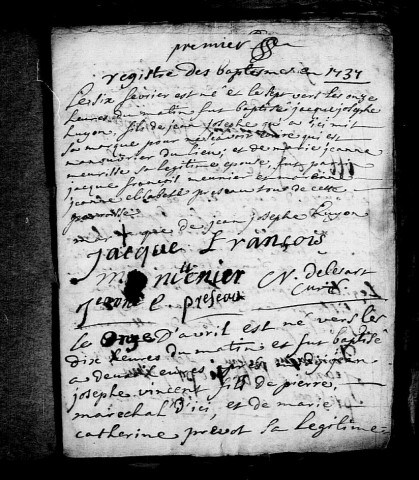 premier
registre des baptesmes en 1737
Le six fevrier est né et le sept vers les onze
heures du matin fut baptisé jacque joseph
Luçon, fils de jean joseph qui a ici mit
sa marque pour
manouvrier du lieu, et de marie jeanne
meurisse sa legitime epouse, fut parain
jacque françois meunier et maraine
jeanne elisabeth preseau tous de cette
paroisse
marque de jean joseph Luçon
jacque François
meunier C. N. delesart
Curé
jeanne e. preseau
le onze D'avril est né vers les
dix heures du matin et fut baptisé
a deux heures
joseph vincent fils de pierre
marechal D'ici, et de marie
catherine prevot sa Legitime